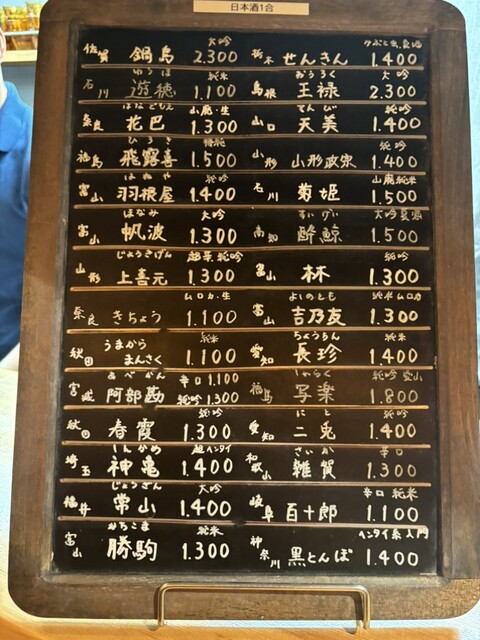 日本酒1合
佐賀 鍋島 大吟 2.300
石川 ゆうほ 遊穂 純米 1.100
奈良 はなともえ 花巴 山廃・生 1.300
福島 ひろき 飛露喜 特純 1.500
富山 はねや 羽根屋 純吟 1.400
富山 ほなみ 帆波 大吟 1.300
山形 じょうきげん 上喜元 超辛 純吟 1.300
奈良 きちょう ムロカ・生 1.100
秋田 うまからまんさく 純米 1.100
宮城 あべかん 阿部勘 辛口 1.100
純吟 1.300
秋田 春霞 純吟 1.300
埼玉 しんかめ 神亀 超ヘンタイ 1.400
福井 じょうざん 常山 大吟 1.400
富山 かちこま 勝駒 純米 1.300
栃木 せんきん 1.400
島根 おうろく 王禄 大吟 2.300
山口 てんび 天美 純吟 1.400
山形 山形政宗 純吟 1.400
石川 菊姫 山廃純米 1.500
高知 すいげい 酔鯨 大吟 1.500
富山 林 純吟 1.300
富山 よしのとも 吉乃友 純米ムロカ 1.300
愛知 ちょうちん 長珍 純米 1.400
福島 しゃらく 写楽 純吟 1.800
愛知 にと 二兎 純吟 1.400
和歌山 さいか 雑賀 辛口 1.300
岐阜 百十郎 辛口 純米 1.100
神奈川 黒とんぼ ヘンタイ系入門 1.400